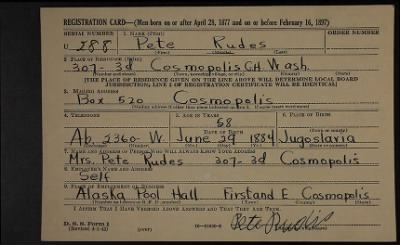 REGISTRATION CARD—(Men born on or after April 28, 1877 and on or before February 16, 1897)
SERIAL NUMBER 1. NAME (Print) ORDER NUMBER
U 288 Pete Rudes
(First) (Middle) (Last)
2. PLACE OF RESIDENCE (Print)
307-3d Cosmopolis G.H. Wash.
(Number and street) (Town, township, village, or city) (County) (State)
[THE PLACE OF RESIDENCE GIVEN ON THE LINE ABOVE WILL DETERMINE LOCAL BOARD
JURISDICTION; LINE 2 OF REGISTRATION CERTIFICATE WILL BE IDENTICAL]
3. MAILING ADDRESS
Box 520 Cosmopolis
4. TELEPHONE 5. AGE IN YEARS 6. PLACE OF BIRTH
58
DATE OF BIRTH
Ab. 2360-W. June 29 1884 Jugoslavia
7. NAME AND ADDRESS OF PERSON WHO WILL ALWAYS KNOW YOUR ADDRESS
Mrs. Pete Rudes 307-3d Cosmopolis
8. EMPLOYER'S NAME AND ADDRESS
Self
9. PLACE OF EMPLOYMENT OR BUSINESS
Alaska Pool Hall First and E Cosmopolis
I AFFIRM THAT I HAVE VERIFIED ABOVE ANSWERS AND THAT THEY ARE TRUE.
D. S. S. Form 1
(Revised 4-1-42) (over)
Pete Rudes